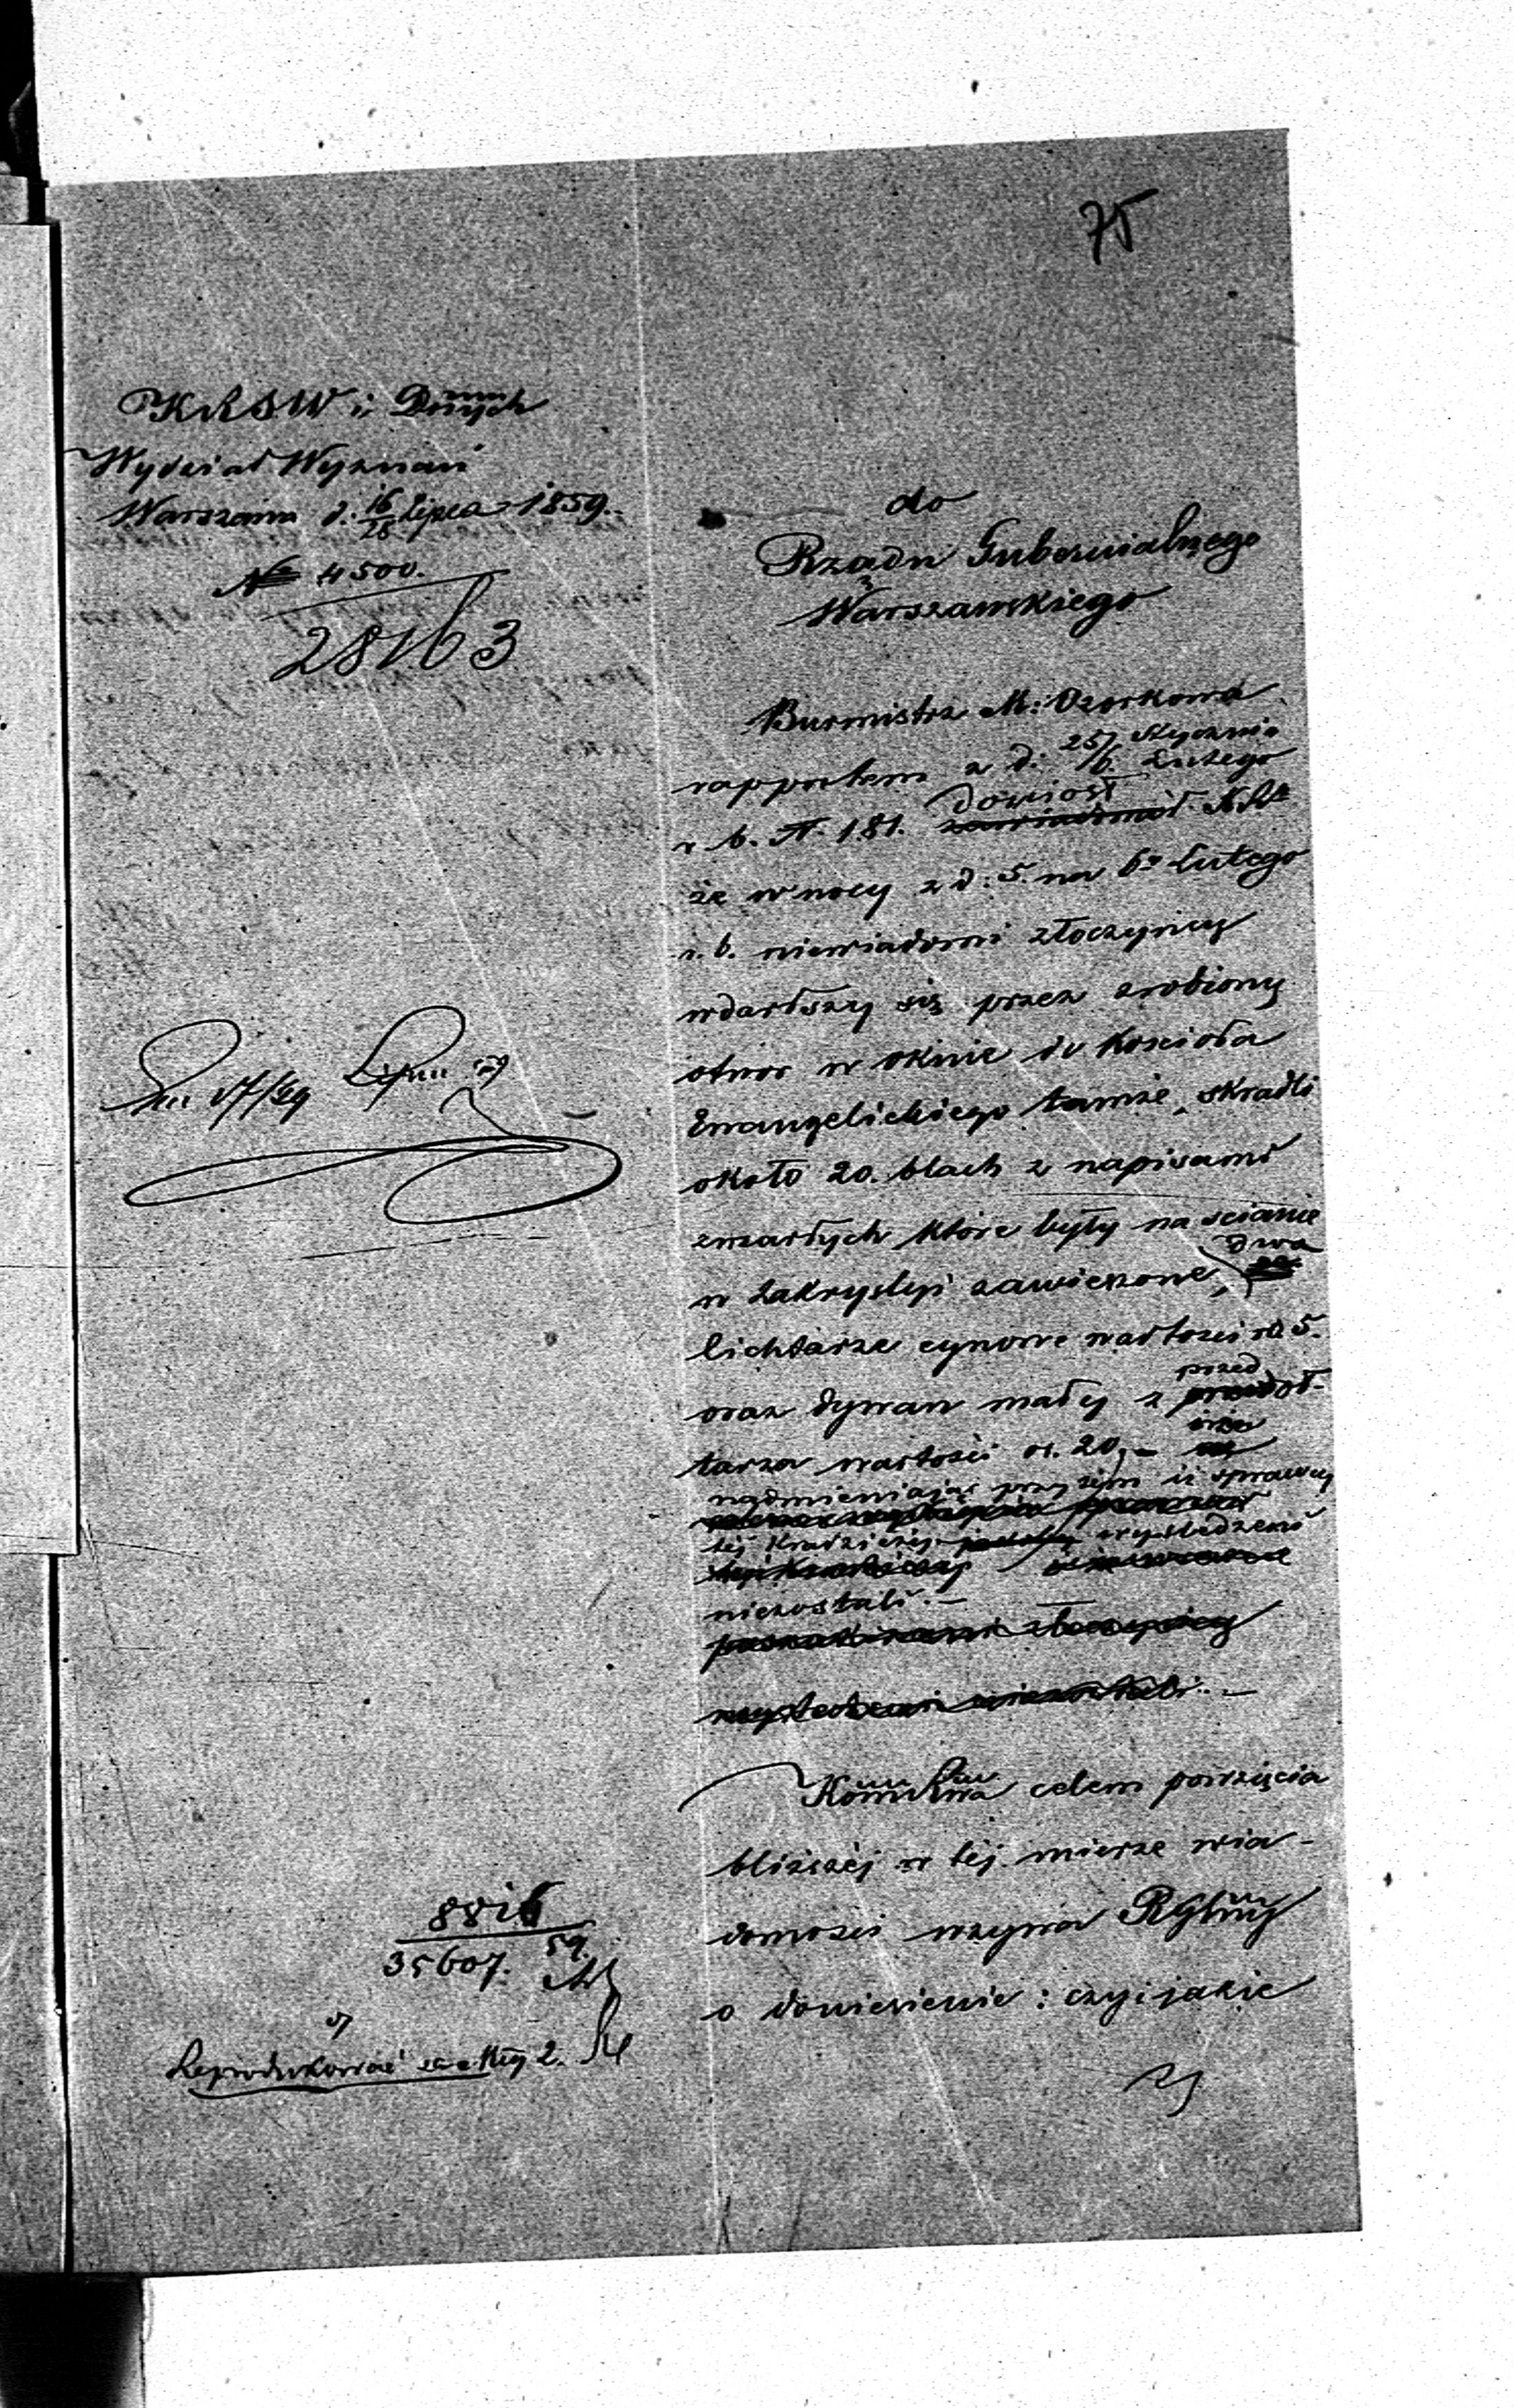 75
KRSW i Dnych
Wydział Wyznań
Warszawa d: 16/28 Lipca 1859.
№ 4500.
28163
do
Rządu Gubernialnego
Warszawskiego
Burmistrz M: Ozorkowa
rapportem z d: 25/6 Stycznia Lutego
r. b. N. 181. doniosł
że w nocy z d: 5. na 6go Lutego
r. b. niewiadomi złoczyńcy
wdarłszy się przez zrobiony
otwor w oknie do Kościoła
Ewangelickiego tamże, skradli
około 20. blach z napisami
zmarłych które były na scianie
w Zakrystyi zawieszone, dwa
lichtarze cynowe wartości rs. 5.
oraz dywan mały z przed oł-
tarza wartości rs. 20,-
nadmieniając przy tém iż sprawcy
téj kradzieży wyśledzeni
niezostali.-
celem powzięcia
bliższéj w téj mierze wia-
domości wzywa RGlny
o doniesienie: czy i jakie
8816
35607. 59.
Reprodukować za Mcy 2.